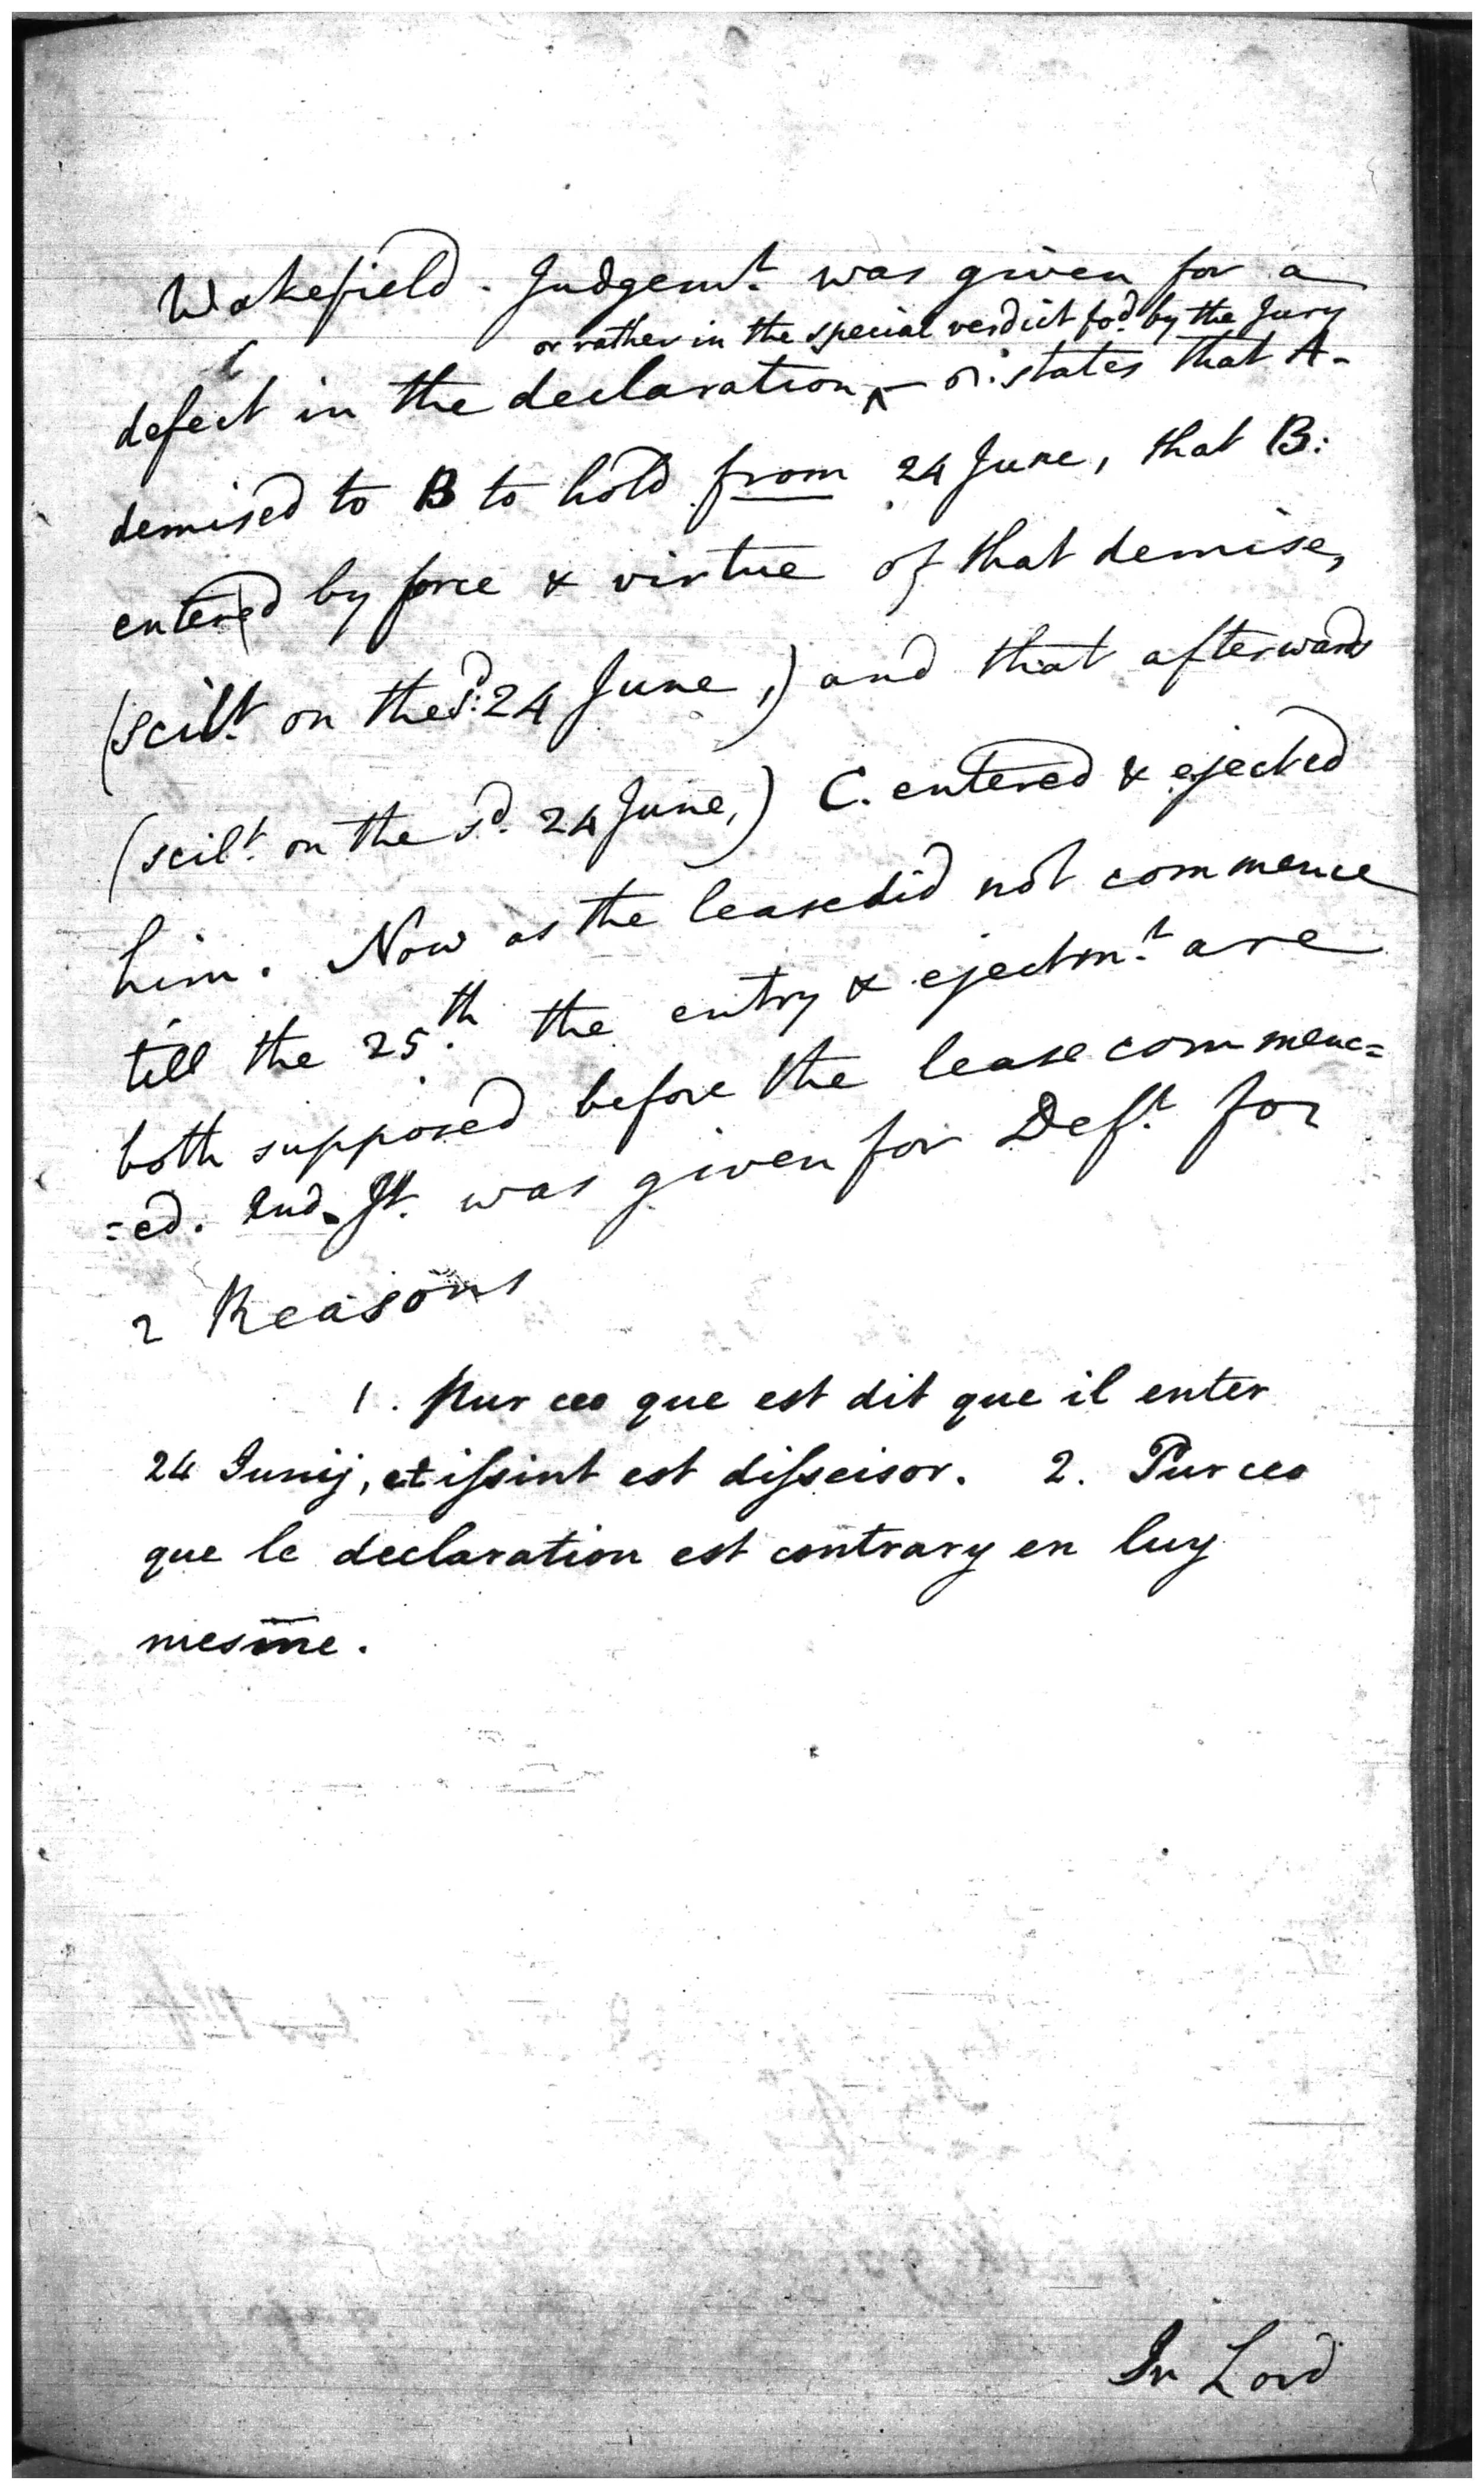 Wakefield. Judgemt. was given for a
or rather in the special verdict fod. by the Jury
defect in the declaration states that A.
demised to B to hold from 24 June, that B:
entered by force & virtue of that demise,
(scilt. on the sd. 24 June,) and that afterwards
(scilt. on the sd. 24 June,) C. entered & ejected
him. Now as the lease did not commence
till the 25th. the entry & ejectmt. are
both supposed before the lease commenc=
=ed. And Jt. was given for Deft. for
2 Reasons
1. Pur ceo que est dit que il enter
24 Junij, et issint est disseisor. 2. Pur ceo
que le declaration est contrary en luy
mesme.
In Lord